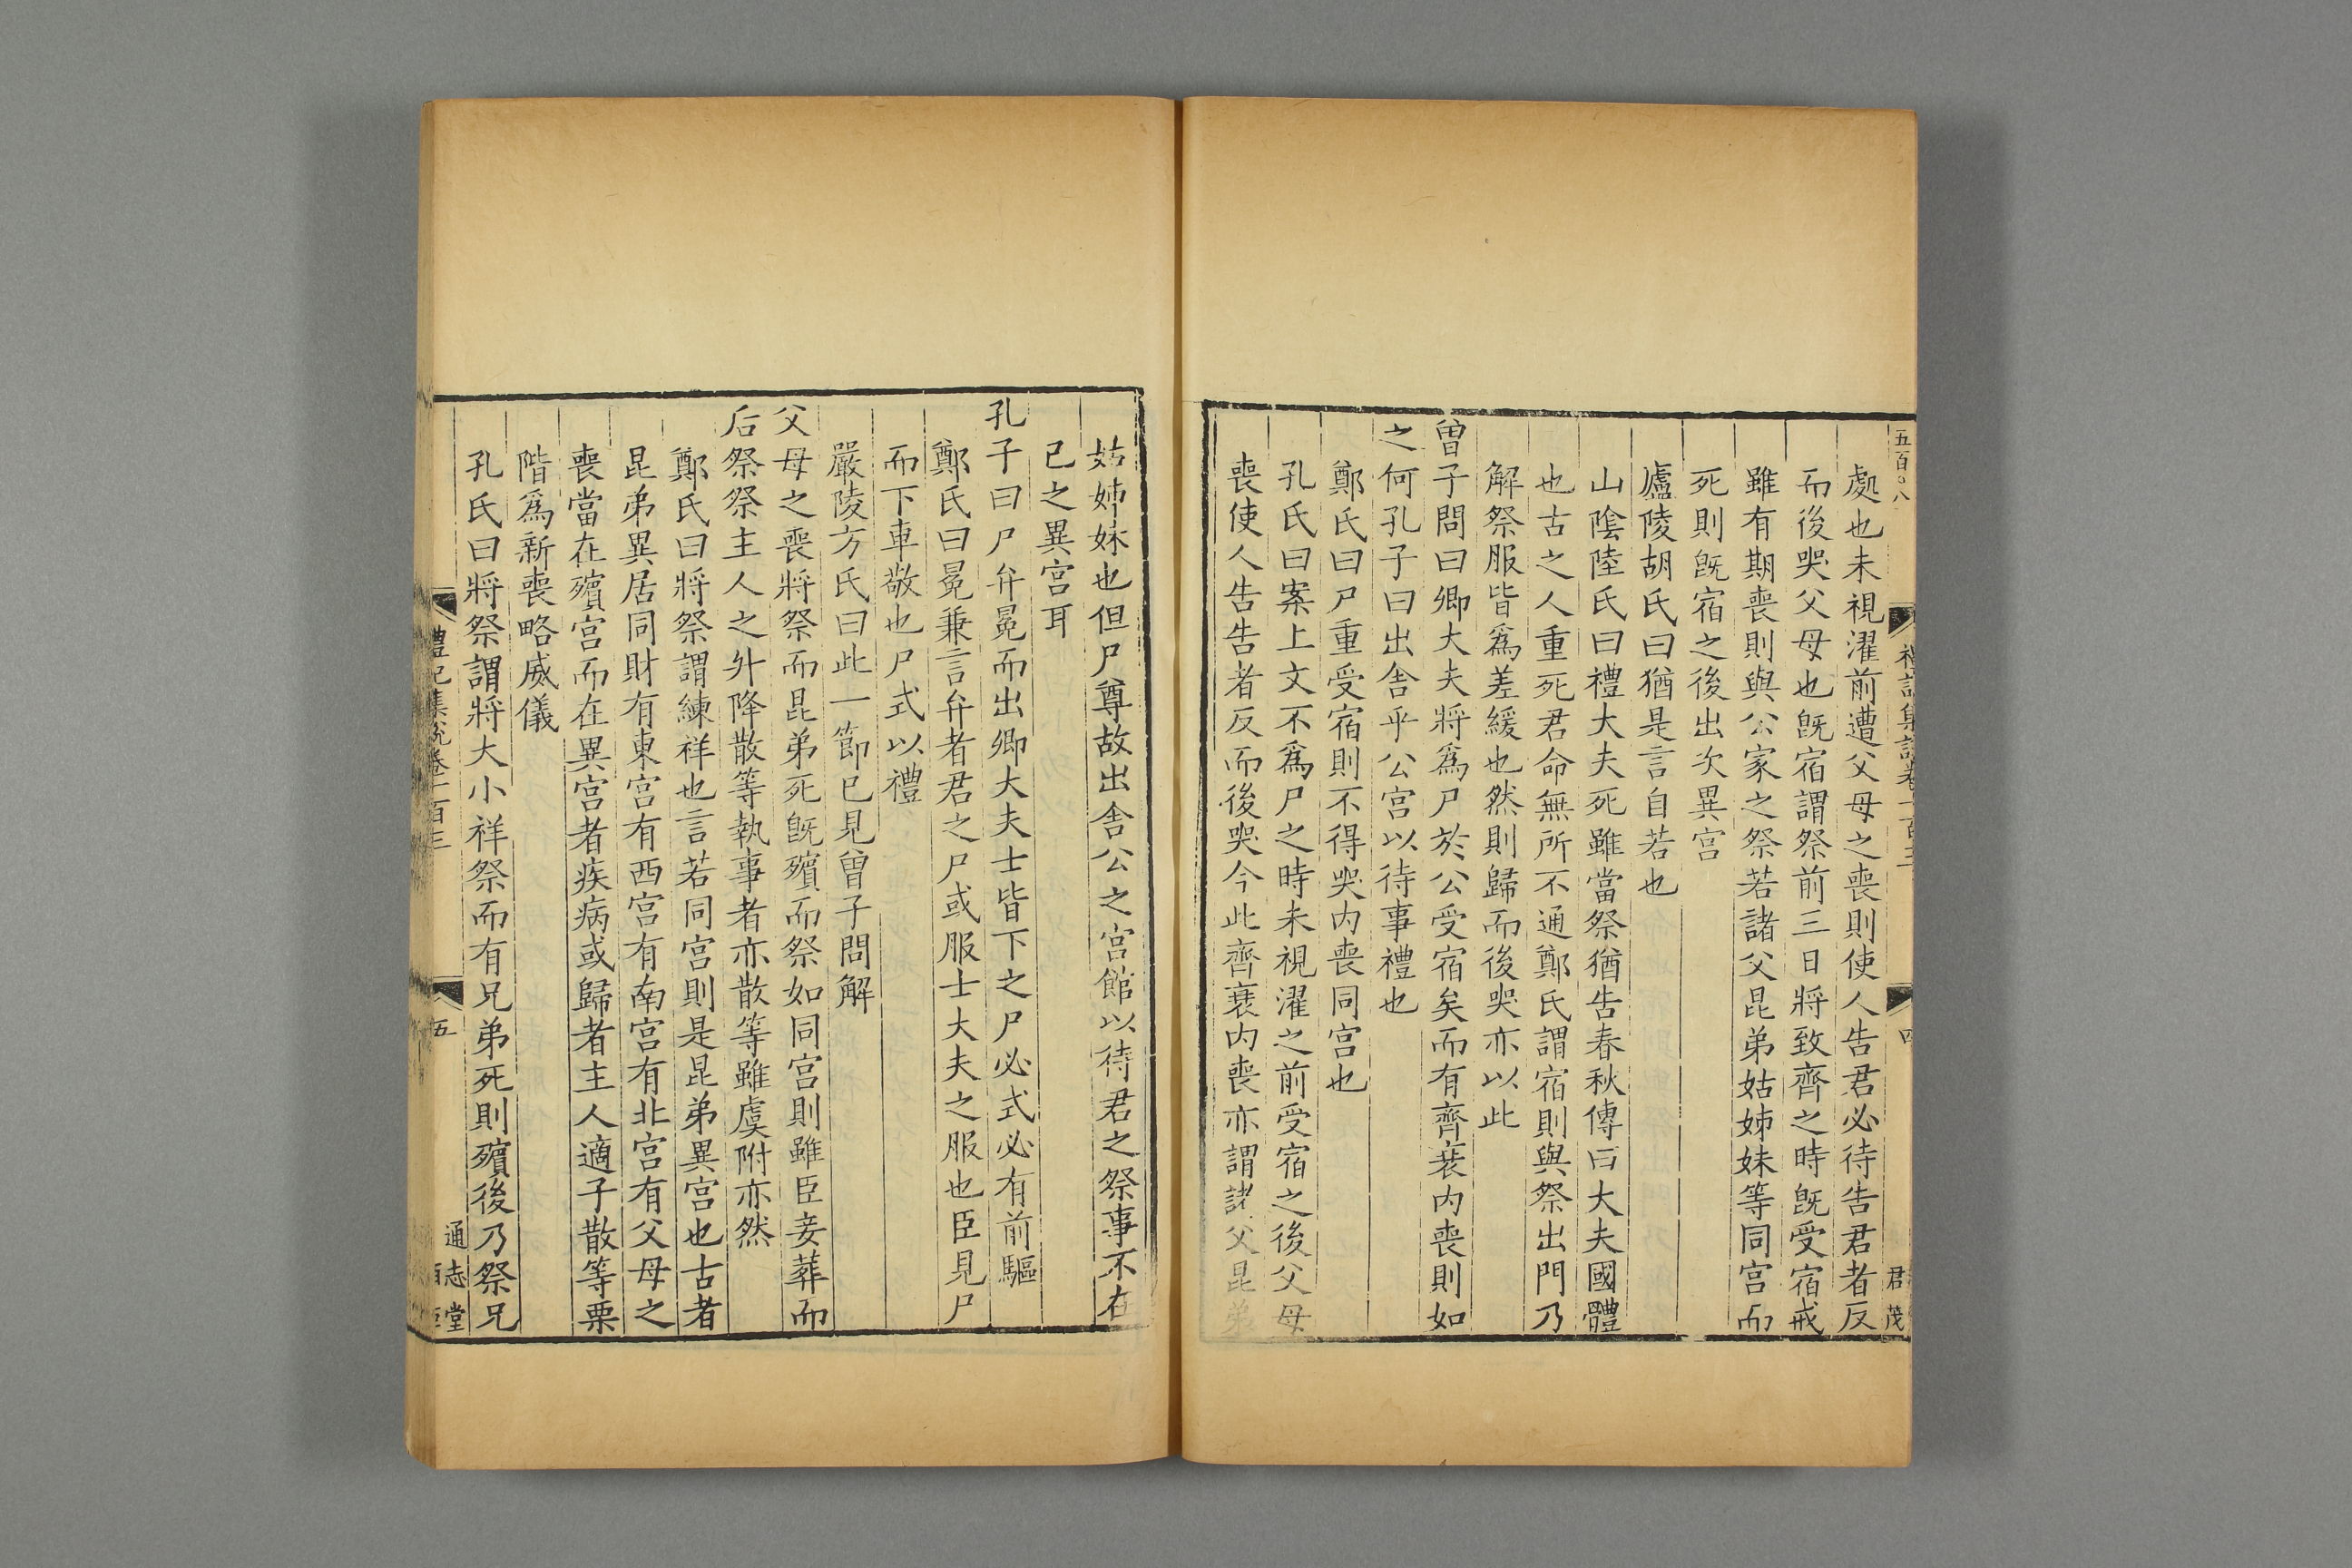 五百〇八
禮記集說卷一百三
四
君茂
處也未視濯前遭父母之喪則使人告君必待告君者反
而後哭父母也旣宿謂祭前三日將致齊之時旣受宿戒
雖有期喪則與公家之祭若諸父昆弟姑姊妹等同宫而
死則旣宿之後出次異宫
廬陵胡氏曰猶是言自若也
山陰陸氏曰禮大夫死雖當祭猶告春秋傳曰大夫國體
也古之人重死君命無所不通鄭氏謂宿則與祭出門乃
解祭服皆爲差緩也然則歸而後哭亦以此
曾子問曰卿大夫將爲尸於公受宿矣而有齊衰内喪則如
之何孔子曰出舍乎公宫以待事禮也
鄭氏曰尸重受宿則不得哭内喪同宫也
孔氏曰案上文不爲尸之時未視濯之前受宿之後父母
喪使人告告者反而後哭今此齊衰内喪亦謂諸父昆弟
姑姊妹也但尸尊故出舍公之宫館以待君之祭事不在
己之異宫耳
孔子曰尸弁冕而出卿大夫士皆下之尸必式必有前驅
鄭氏曰冕兼言弁者君之尸或服士大夫之服也臣見尸
而下車敬也尸式以禮
嚴陵方氏曰此一節已見曾子問解
父母之喪將祭而昆弟死旣殯而祭如同宫則雖臣妾葬而
后祭祭主人之升降散等執事者亦散等雖虞附亦然
鄭氏曰將祭謂練祥也言若同宫則是昆弟異宫也古者
昆弟異居同財有東宫有西宫有南宫有北宫有父母之
喪當在殯宫而在異宫者疾病或歸者主人適子散等栗
階爲新喪略威儀
孔氏曰將祭謂將大小祥祭而有兄弟死則殯後乃祭兄
禮記集說卷一百三
五
通志堂